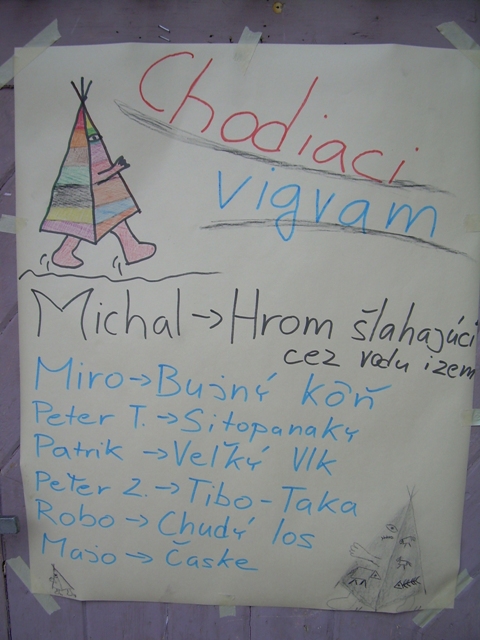 Chodiaci
vigvam
Michal → Hrom šlahajúci
cez vodu i zem
Miro → Bujný kôň
Peter T. → Sitopanaky
Patrik → Veľký Vlk
Peter Z. → Tibo-Taka
Robo → Chudý los
Majo → Časke